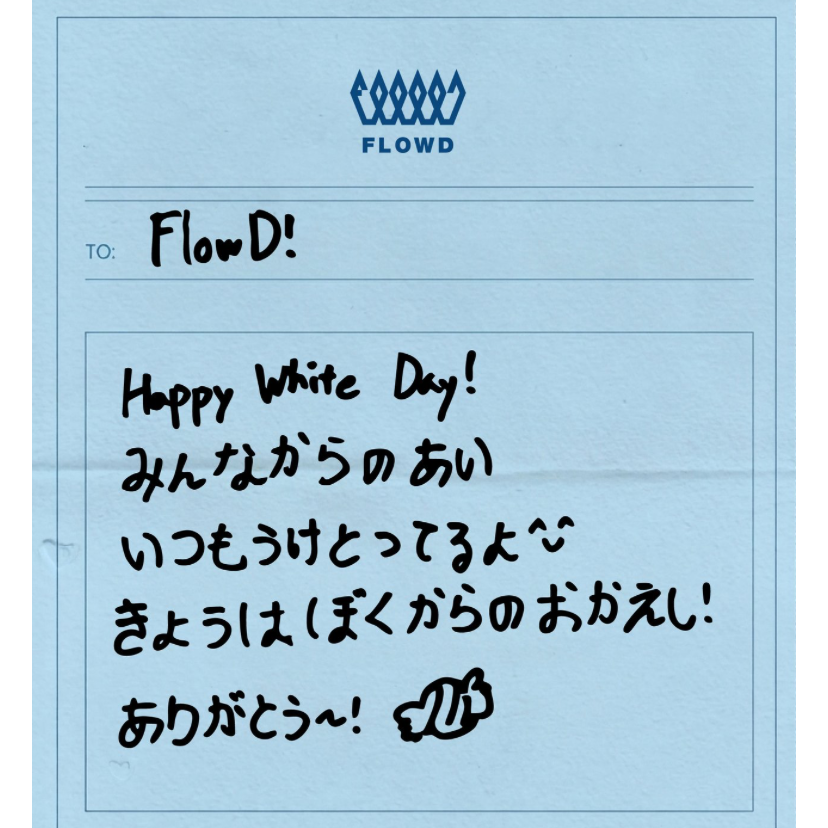 FLOWD
TO: FlowD!
Happy White Day!
みんなからのあい
いつもうけとってるよ^ᴗ^
きょうはぼくからのおかえし!
ありがとう〜!